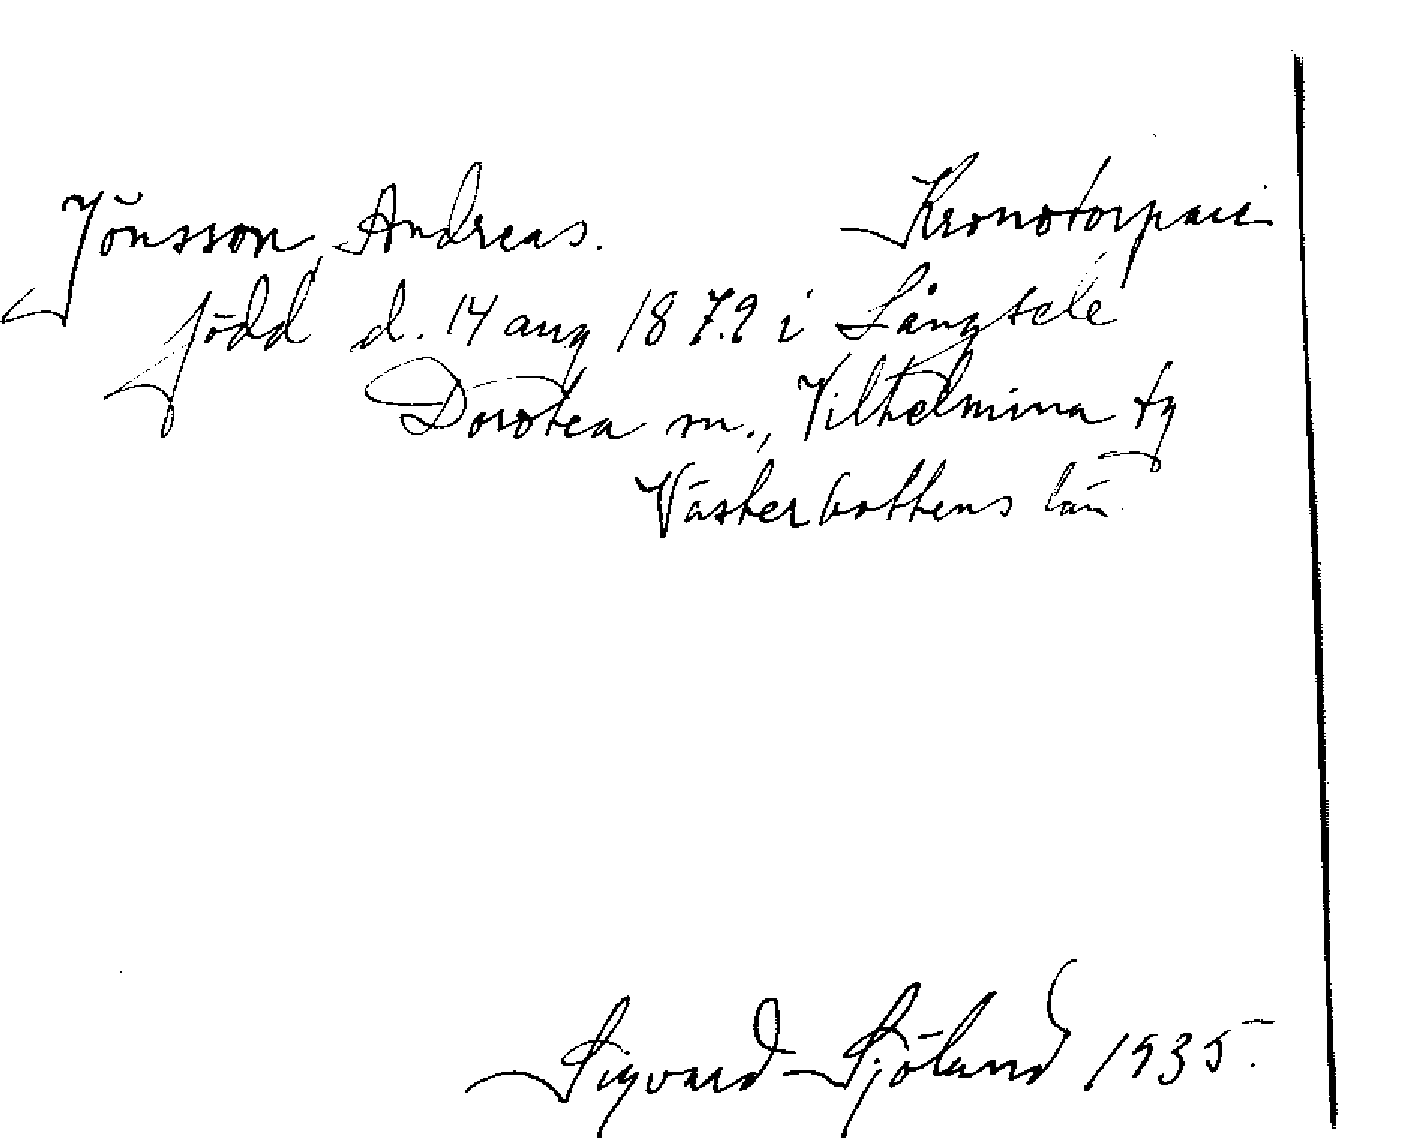 Jönsson, Andreas. Kronotorpare
född d. 14 aug 1879 i Långsele
Dorotea sn., Vilhelmina tg
Västerbottens län.
Sigvard Sjöland 1935.